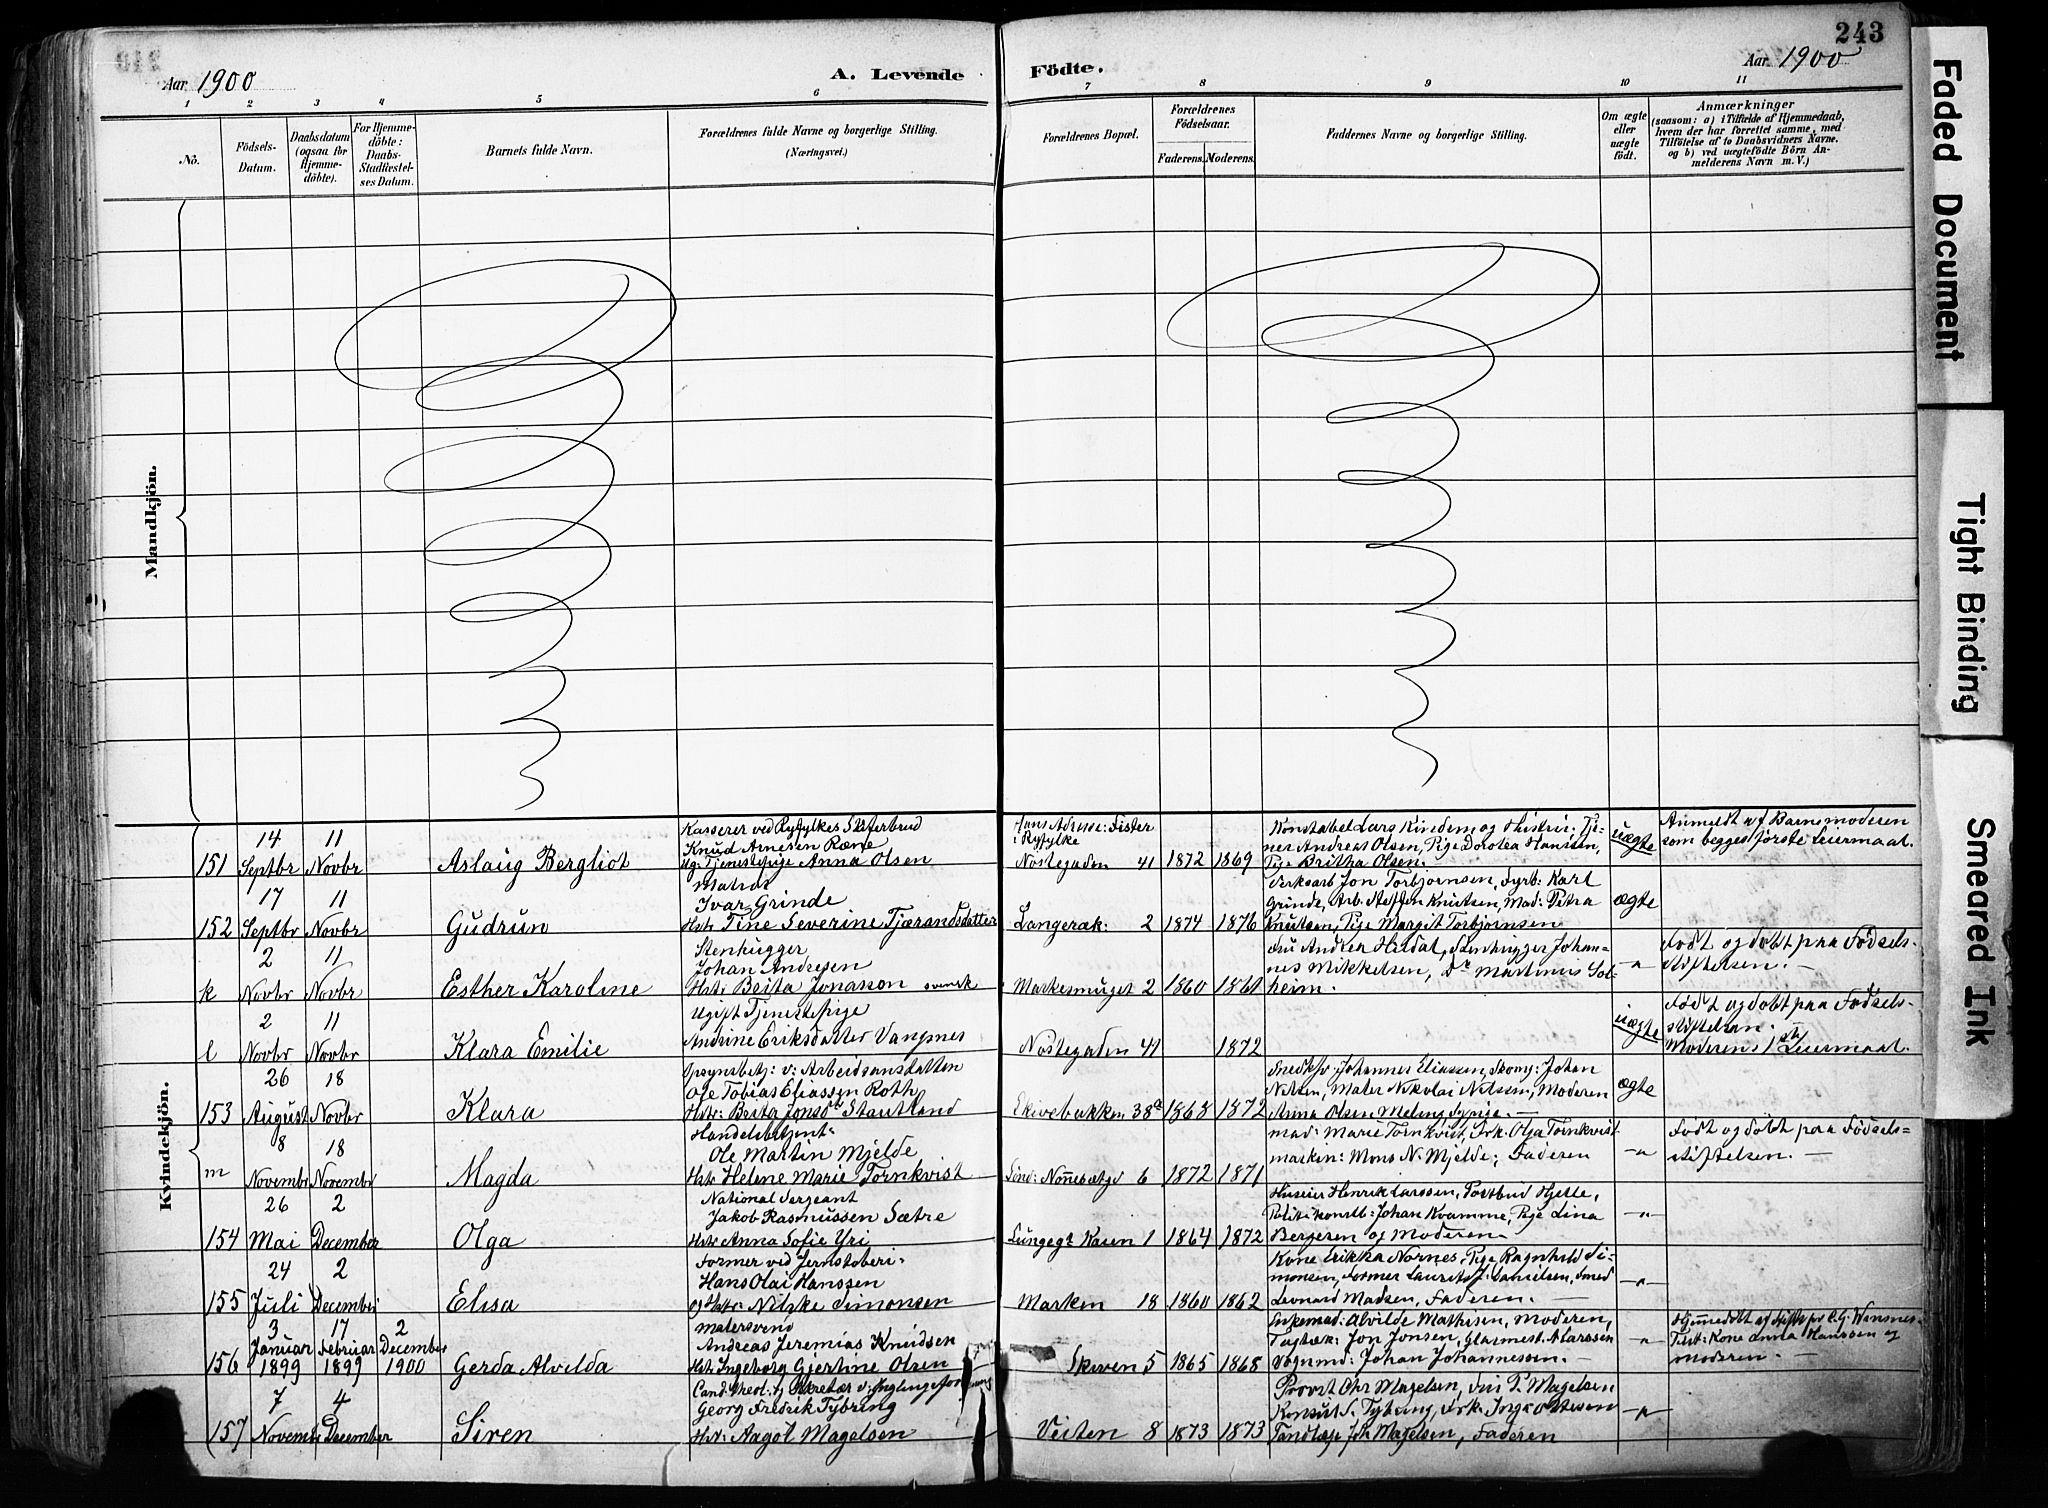 243
Aar 1900
A. Levende
Födte.
Aar 1900
1 2 3 4 5 6 7 8 9 10 11
No.
Födsels-
Datum.
Daabsdatum
(ogsaa for
Hjemme-
döbte).
For Hjemme-
döbte:
Daabs-
Stadfæstel-
ses Datum.
Barnets fulde Navn.
Forældrenes fulde Navne og borgerlige Stilling.
(Næringsvei.)
Forældrenes Bopæl.
Forældrenes
Födselsaar.
Faderens. Moderens.
Faddernes Navne og borgerlige Stilling.
Om ægte
eller
uægte
födt.
Anmærkninger
(saasom: a) i Tilfælde af Hjemmedaab,
hvem der har forrettet samme, med
Tilföielse af to Daabsvidners Navne.
og b) ved uægtefödte Börn An-
melderens Navn m. V.)
Mandkjön.
Kvindekjön.
151
14
Septbr
11
Novbr
Aslaug Bergliot
Kasserer ved Ryfylkes
Knud Arnesen Ræne
Ug: Tjenestepige Anna Olsen
Hans Adresse: Fister
i Ryfylke
Nöstegaden 41
1872 1869
Konstabel Lars Rinden og Hustru, Tje-
ner Andreas Olsen, Pige Dorotea Hanssen,
Pige Britha Olsen.
uægte
Anmeldt af Barnemoderen
som begges förste Leiermaal.
152
17
Septbr
11
Novbr
Gudrun
Matros
Ivar Grinde
Hstr Tine Severine Tjærandsdatter
Langerak: 2
1874 1876
Verksarb Jon Torbjornsen, Fyrb: Karl
Grinde, Arb. Steffen Knutsen, Mad: Petra
Knutsen, Pige Margit Torbjörnsen
ægte
k
2
Novbr
11
Novbr
Esther Karoline
Stenhugger
Johan Andresen
Hstr Beita Jonasson svensk
Markesmuget 2
1860 1861
Fru Andrea Heldal, Stenhugger Johan-
nes Mikkelsen, Do Martinus Sol-
heim.
-"-
Födt og döbt paa Födsels-
stiftelsen.
l
2
Novbr
11
Novbr
Klara Emilie
Ugift Tjenestepige
Andrine Eriksdatter Vangsnes
Nöstegaden 41
1872
uægte
Födt og döbt paa Födsels-
stiftelsen.
Moderens 1ste Leiermaal.
153
26
August
18
Novbr
Klara
Opsynsbetj: v: Arbeidsanstalten
Ole Tobias Eliassen Roth
Hstr: Brita Jonsdr Stautland
Skivebakken 38a
1863 1872
Snedker Johannes Eliassen, Skomg: Johan
Nilsen, Maler Nikolai Nilssen, Moderen
Anna Olsen Meling Sypige.
ægte
m
8
Novembr
18
Novembr
Magda
Handelsbetjent
Ole Martin Mjelde
Hstr Helene Marie Törnkvist
Sind: Nonnesætgd 6
1872 1871
Mad: Marie Törnkvist, Frk. Olga Törnkvist
maskin: Mons N. Mjelde, Faderen
-"-
Födt og döbt paa Födsels-
stiftelsen.
154
26
Mai
2
December
Olga
National Sergeant
Jakob Rasmussen Sætre
Hstr Anna Sofie Yri
Lungegs Kasen 1
1864 1872
Huseier Henrik Larssen, Postbud Hjelle,
Politikonstb: Johan Kvamme, Pige Lina
Bergesen og Moderen
-"-
155
24
Juli
2
December
Elisa
Former ved Jernstöberi
Hans Olai Hanssen
og Hstr: Nilske Simonsen
Marken 18
1860 1862
Kone Erikka Nornes, Pige Ragnhild Si-
monsen, Former Laurits J. Danielsen, Smed
Leonard Madsen, Faderen.
-"-
156
3
Januar
1899
17
Februar
1899
2
December
1900
Gerda Alvilda
Malersvend
Andreas Jeremias Knudsen
Hstr: Ingeborg Gjertine Olsen
Skiven 5
1865 1868
Enkemad: Alvilde Mathisen, Moderen,
Tagtæk: Jon Jonsen, Glasmest. A Larssen
Vognmd: Johan Johannessen.
-"-
Hjemmedöbt af
Test: Kone Anna Hanssen og
Moderen.
157
7
Novembr
4
December
Siren
Cand: theol: og Sekretær v:
Georg Fredrik Tybring
Hstr: Aagot Magelsen
Veiten 8
1873 1873
Provst Chr Magelsen, Fru T. Magelsen
Konsul S. Tybring, Frk. Inga Ottesen
Tandlæge Joh Magelsen, Faderen
-"-
Faded Document
Tight Binding
Smeared Ink